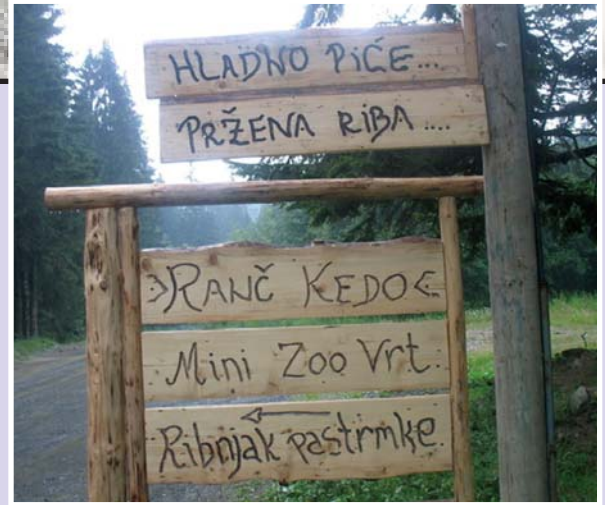 HLADNO PIĆE...
PRŽENA RIBA....
RANČ KEDO
Mini Zoo Vrt
Ribnjak pastrmke